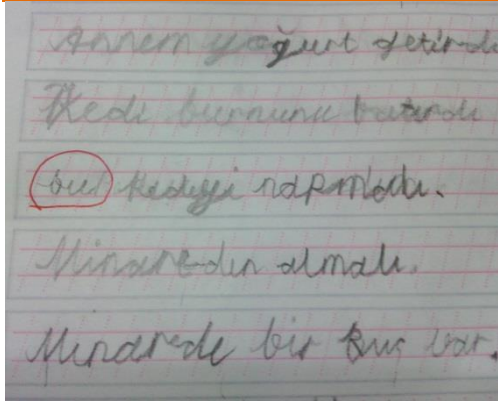 Annem yoğurt getirdi
Kedi burnunu batırdı
bul kediyi napmalı.
Minareden atmalı.
Minarede bir kuş var.